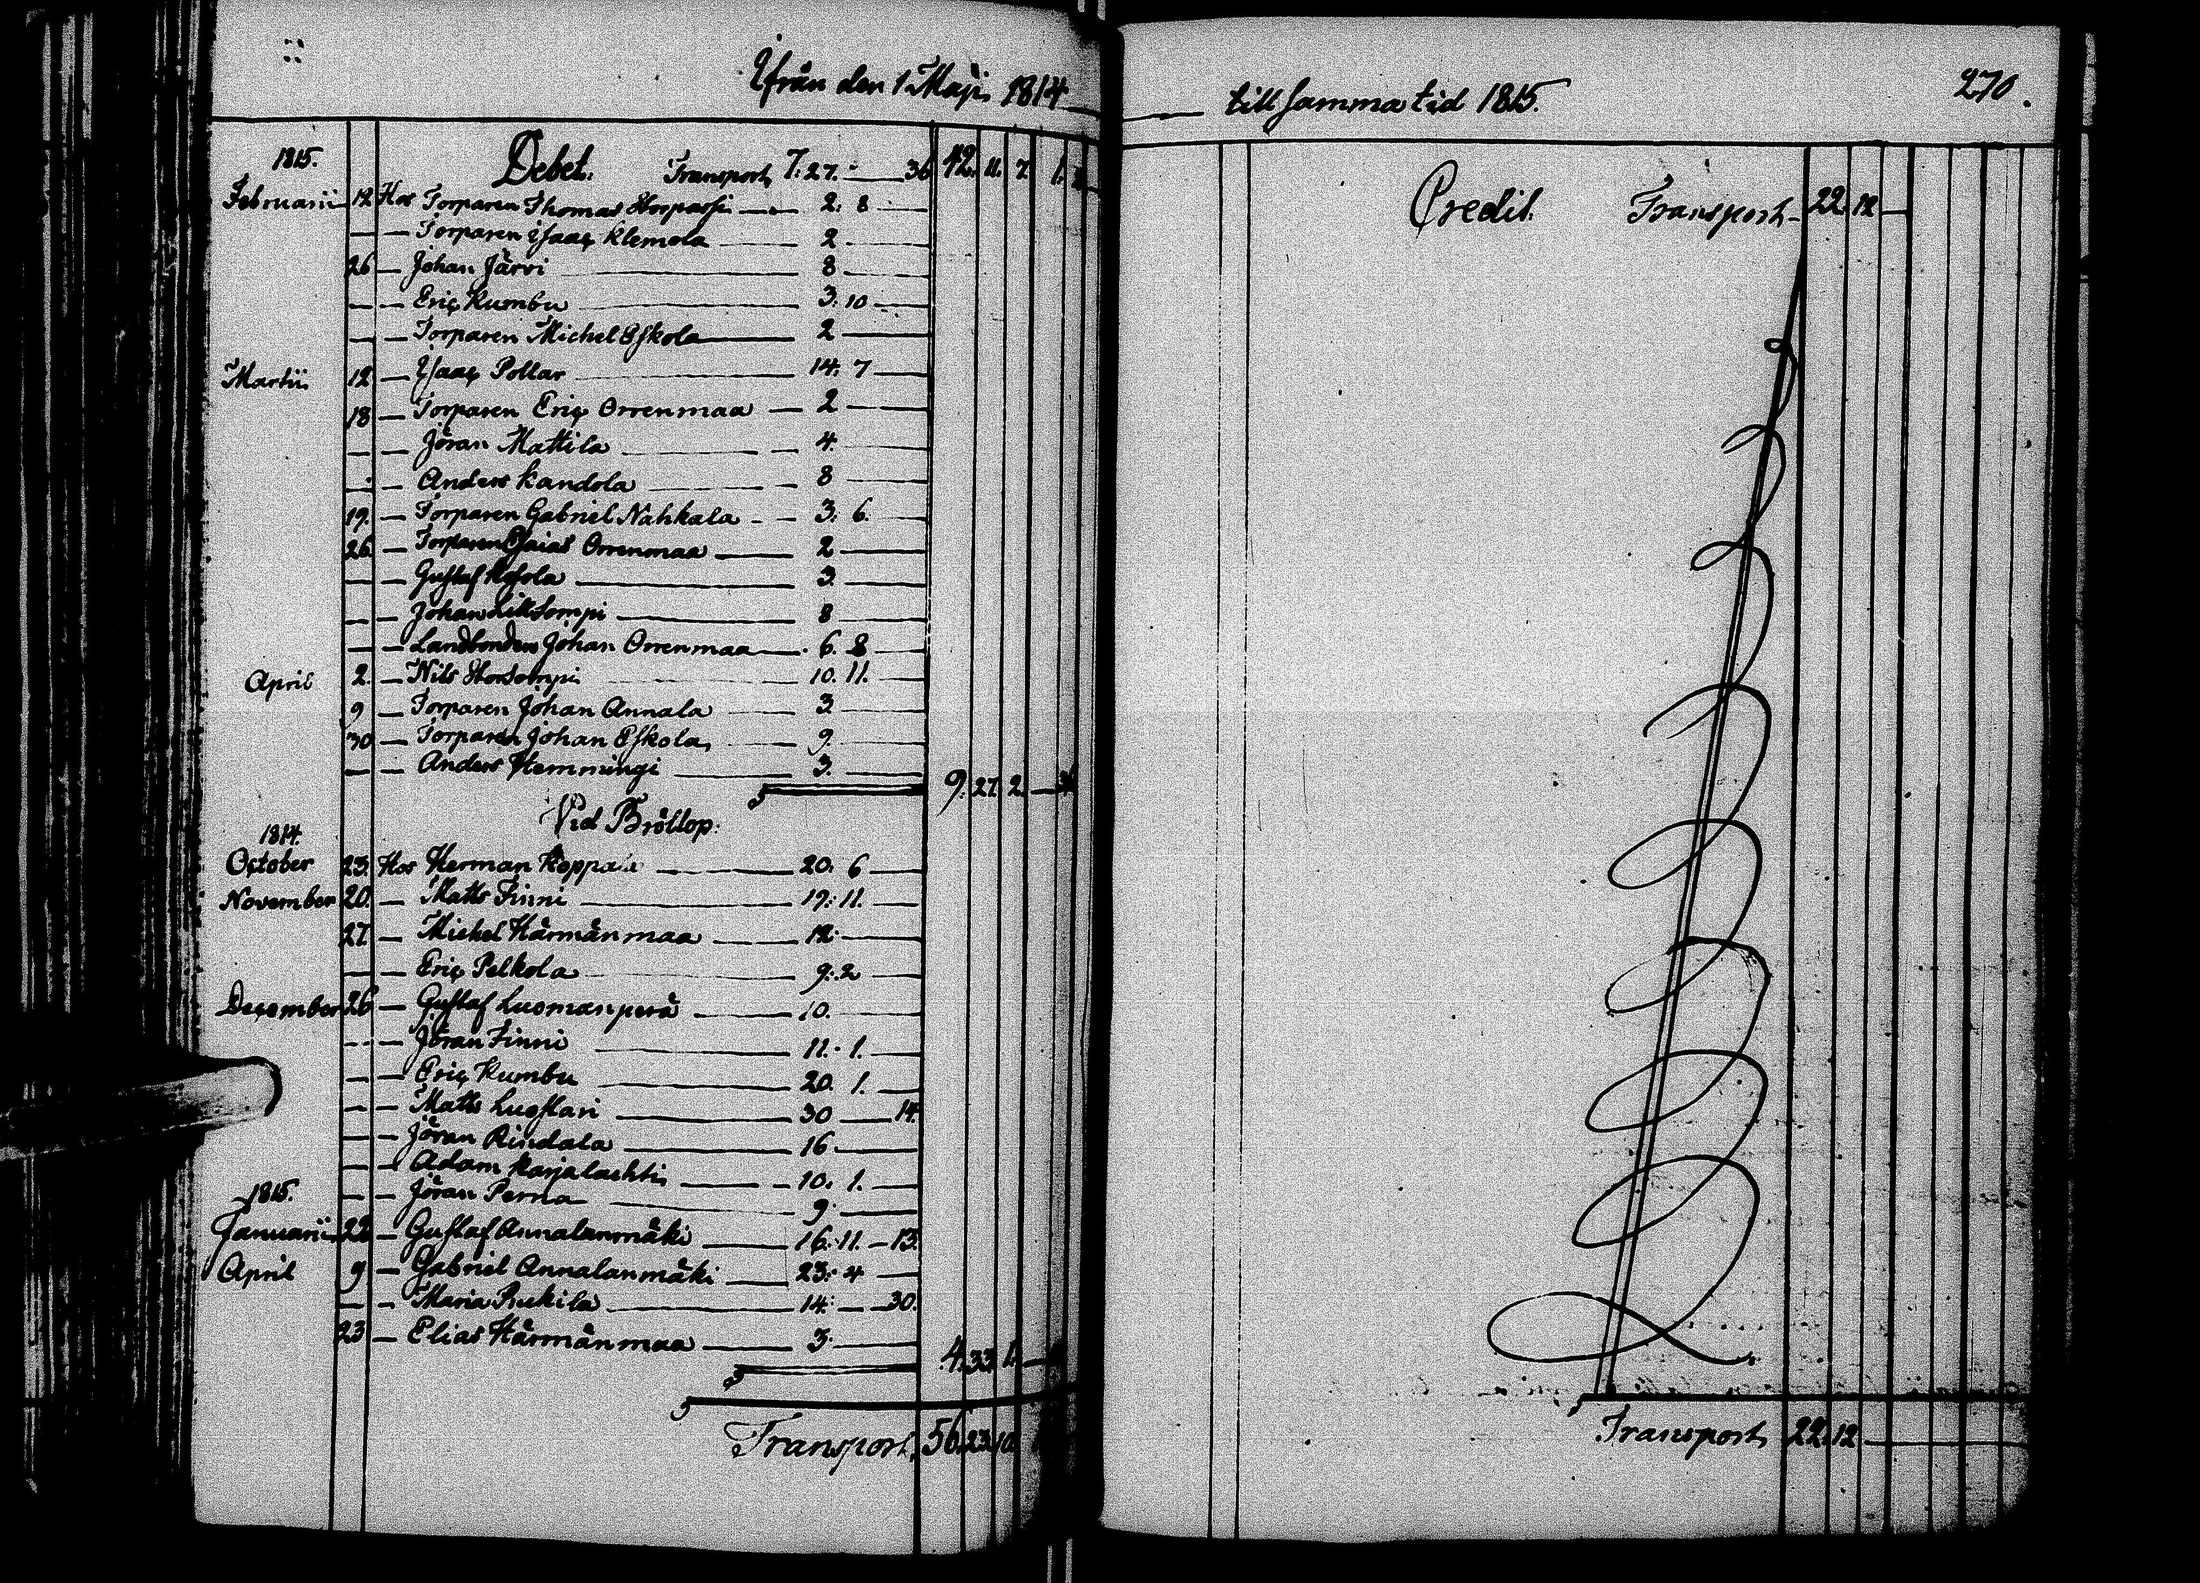 Ifrån den 1 Maji 1814
till samma tid 1815.
270.
1815.
Debet. Transport 7. 27. — 36 42. 11. 7 1.
Februarii 12 Hos Torparen Thomas Storpassi — 2. 8 —
— — Torparen Isaac Klemola — 2 —
26 — Johan Järvi — 8 —
— — Eric Kumbu — 3. 10 —
— — Torparen Michel Eskola — 2 —
Martii 12 — Isaac Pollar — 14. 7 —
18 — Torparen Eric Orrenmaa — 2 —
— — Jöran Mattila — 4. —
— — Anders Kandola — 8 —
19. — Torparen Gabriel Nahkala — 3. 6. —
26 — Torparen Esaias Orrenmaa — 2 —
— — Gustaf Kosola — 3. —
— — Johan Lillsompi — 8 —
— — Landbonden Johan Orrenmaa — 6. 8 —
April 2. — Nils Storsompi — 10. 11. —
9 — Torparen Johan Annala — 3 —
30 — Torparen Johan Eskola — 9. —
— — Anders Hemmingi — 3. —
9. 27 2 —
Vid Bröllop.
1814.
October 23. Hos Herman — 20. 6 —
November 20. — Matts Finni — 19. 11. —
27 — Michel Härmänmaa — 12. —
— — Eric Pelkola — 9. 2 —
December 26 — Gustaf Luomanperä — 10. —
— — Jöran Finni — 11. 1. —
— — Eric Kumbu — 20. 1. —
— — Matts Luostari — 30 — 14.
— — Jöran Rindala — 16 —
— — Adam Karjalachti — 10. 1. —
1815. — — Jöran Perna — 9. —
Januarii 22 — Gustaf Annalanmäki — 16. 11. — 13.
April 9 — Gabriel Annalanmäki — 23. 4 —
— — Maria Rukila — 14. — 30.
23 — Elias Härmänmaa — 3. —
4. 33. 1. —
Transport 56. 23. 10.
Credit. Transport 22. 12 —
Transport 22. 12 —